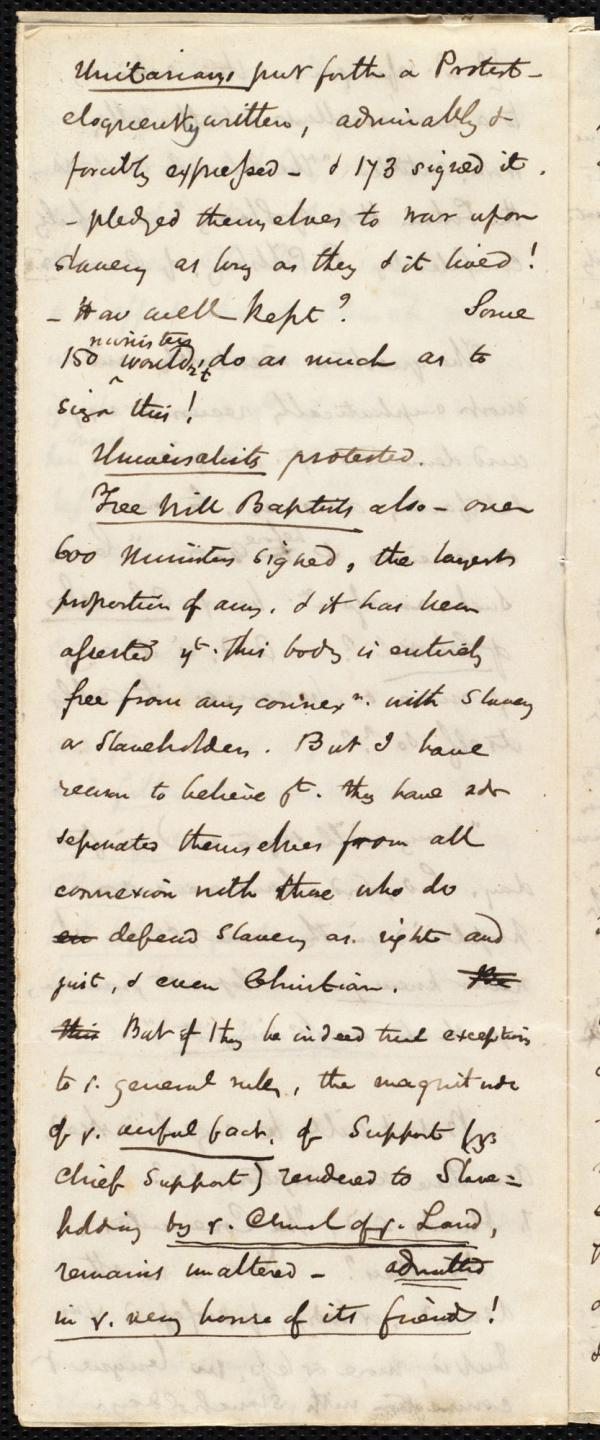 Unitarians put forth a Protest -
eloquently written, admirably &
forcibly expressed - & 173 signed it.
- pledged themselves to war upon
slavery as long as they & it lived!
- How well kept? Some
ministers
150 would n't do as much as to
sign this!
Universalists protested.
Free Will Baptists also - over
600 Ministers signed, the largest
proportion of any. & it has been
asserted yt. this body is entirely
free from any connexn. with Slavery
or Slaveholders. But I have
reason to believe yt. they have not
separated themselves from all
connexion with those who do
en defend Slavery as right and
just, & even Christian. The
this But if they be indeed true exceptions
to ye. general rule, the magnitude
of ye. awful fact, of Support (ye
chief Support) rendered to Slave=
holding by ye. Church of ye. Land,
remains unaltered - admitted
in ye. very house of its friends!